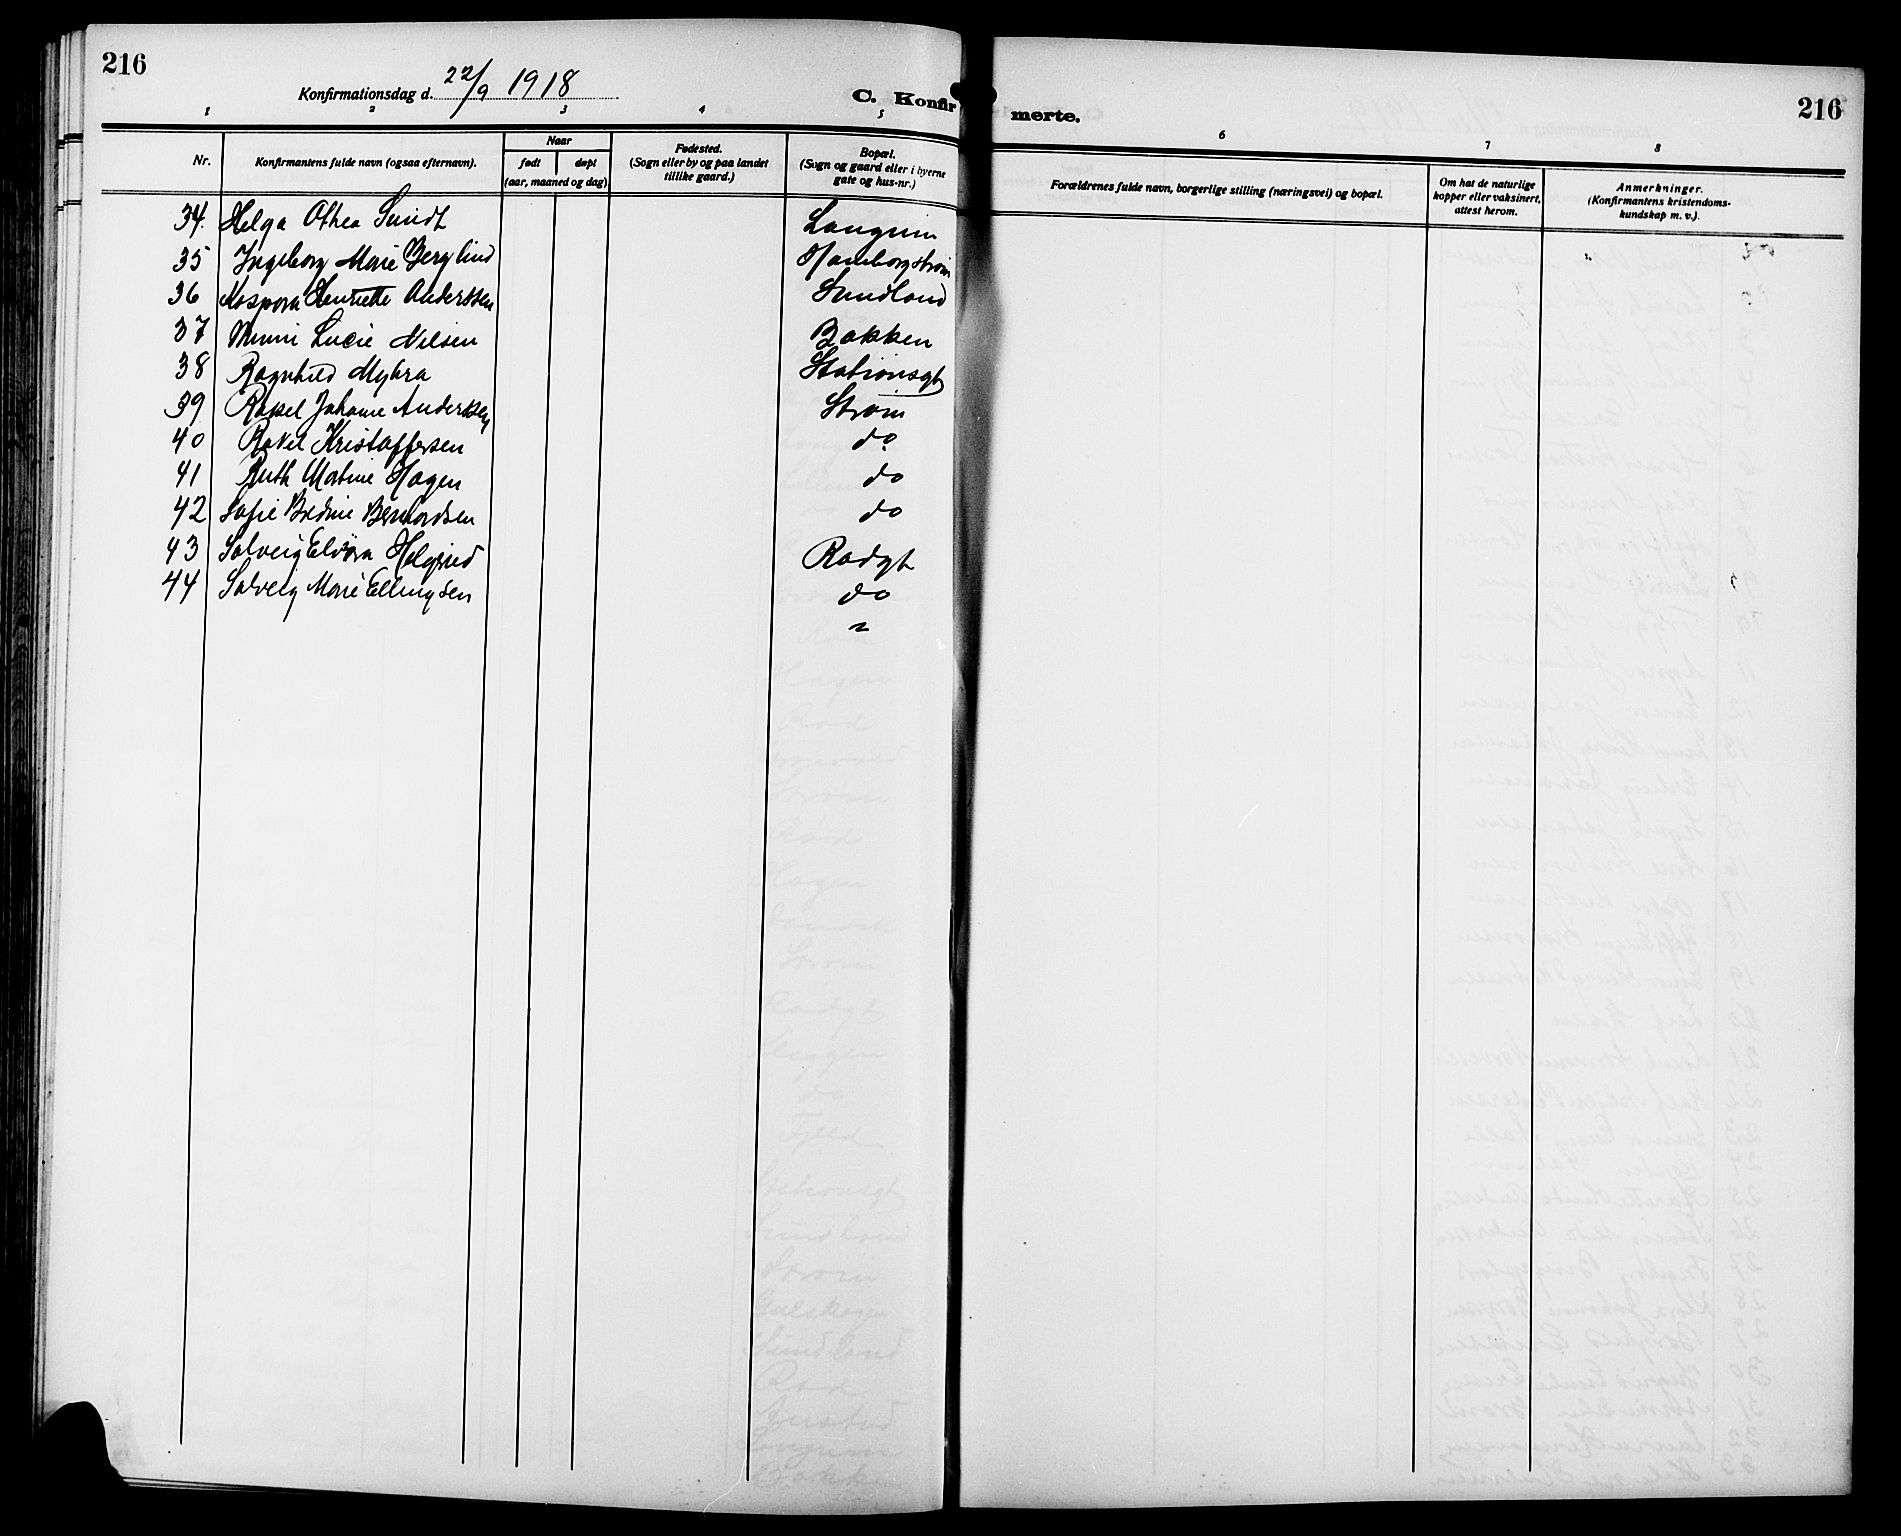 216
Konfirmationsdag d. 22/9 1918
C. Konfirmerte.
216
1 2 3 4 5 6 7 8
Nr.
Konfirmantens fulde navn (ogsaa efternavn).
Naar
født døpt
(aar, maaned og dag)
Fødested.
(Sogn eller by og paa landet
tillike gaard.)
Bopæl.
(Sogn og gaard eller i byerne
gate og hus-nr.)
Forældrenes fulde navn, borgerlige stilling (næringsvei) og bopæl.
Om hat de naturlige
kopper eller vaksinert,
attest herom.
Anmerkninger.
(Konfirmantens kristendoms-
kundskap m. v.).
34. Helga Othea Sundt Langum
35 Ingeborg Marie Berglind Hamborgstrøm
36 Henriette Anderssen Sundland
37 Lucie Nilsen Bakken
38 Ragnhild Myhra Stationsgt
39 Rakel Johanne Anderssen Strøm
40 Rakel Kristoffersen do
41 Ruth Martine Hagen do
42 Sofie Bernhardsen do
43 Solveig Elvira Rødgt
44 Solveig Marie Ellingsen do